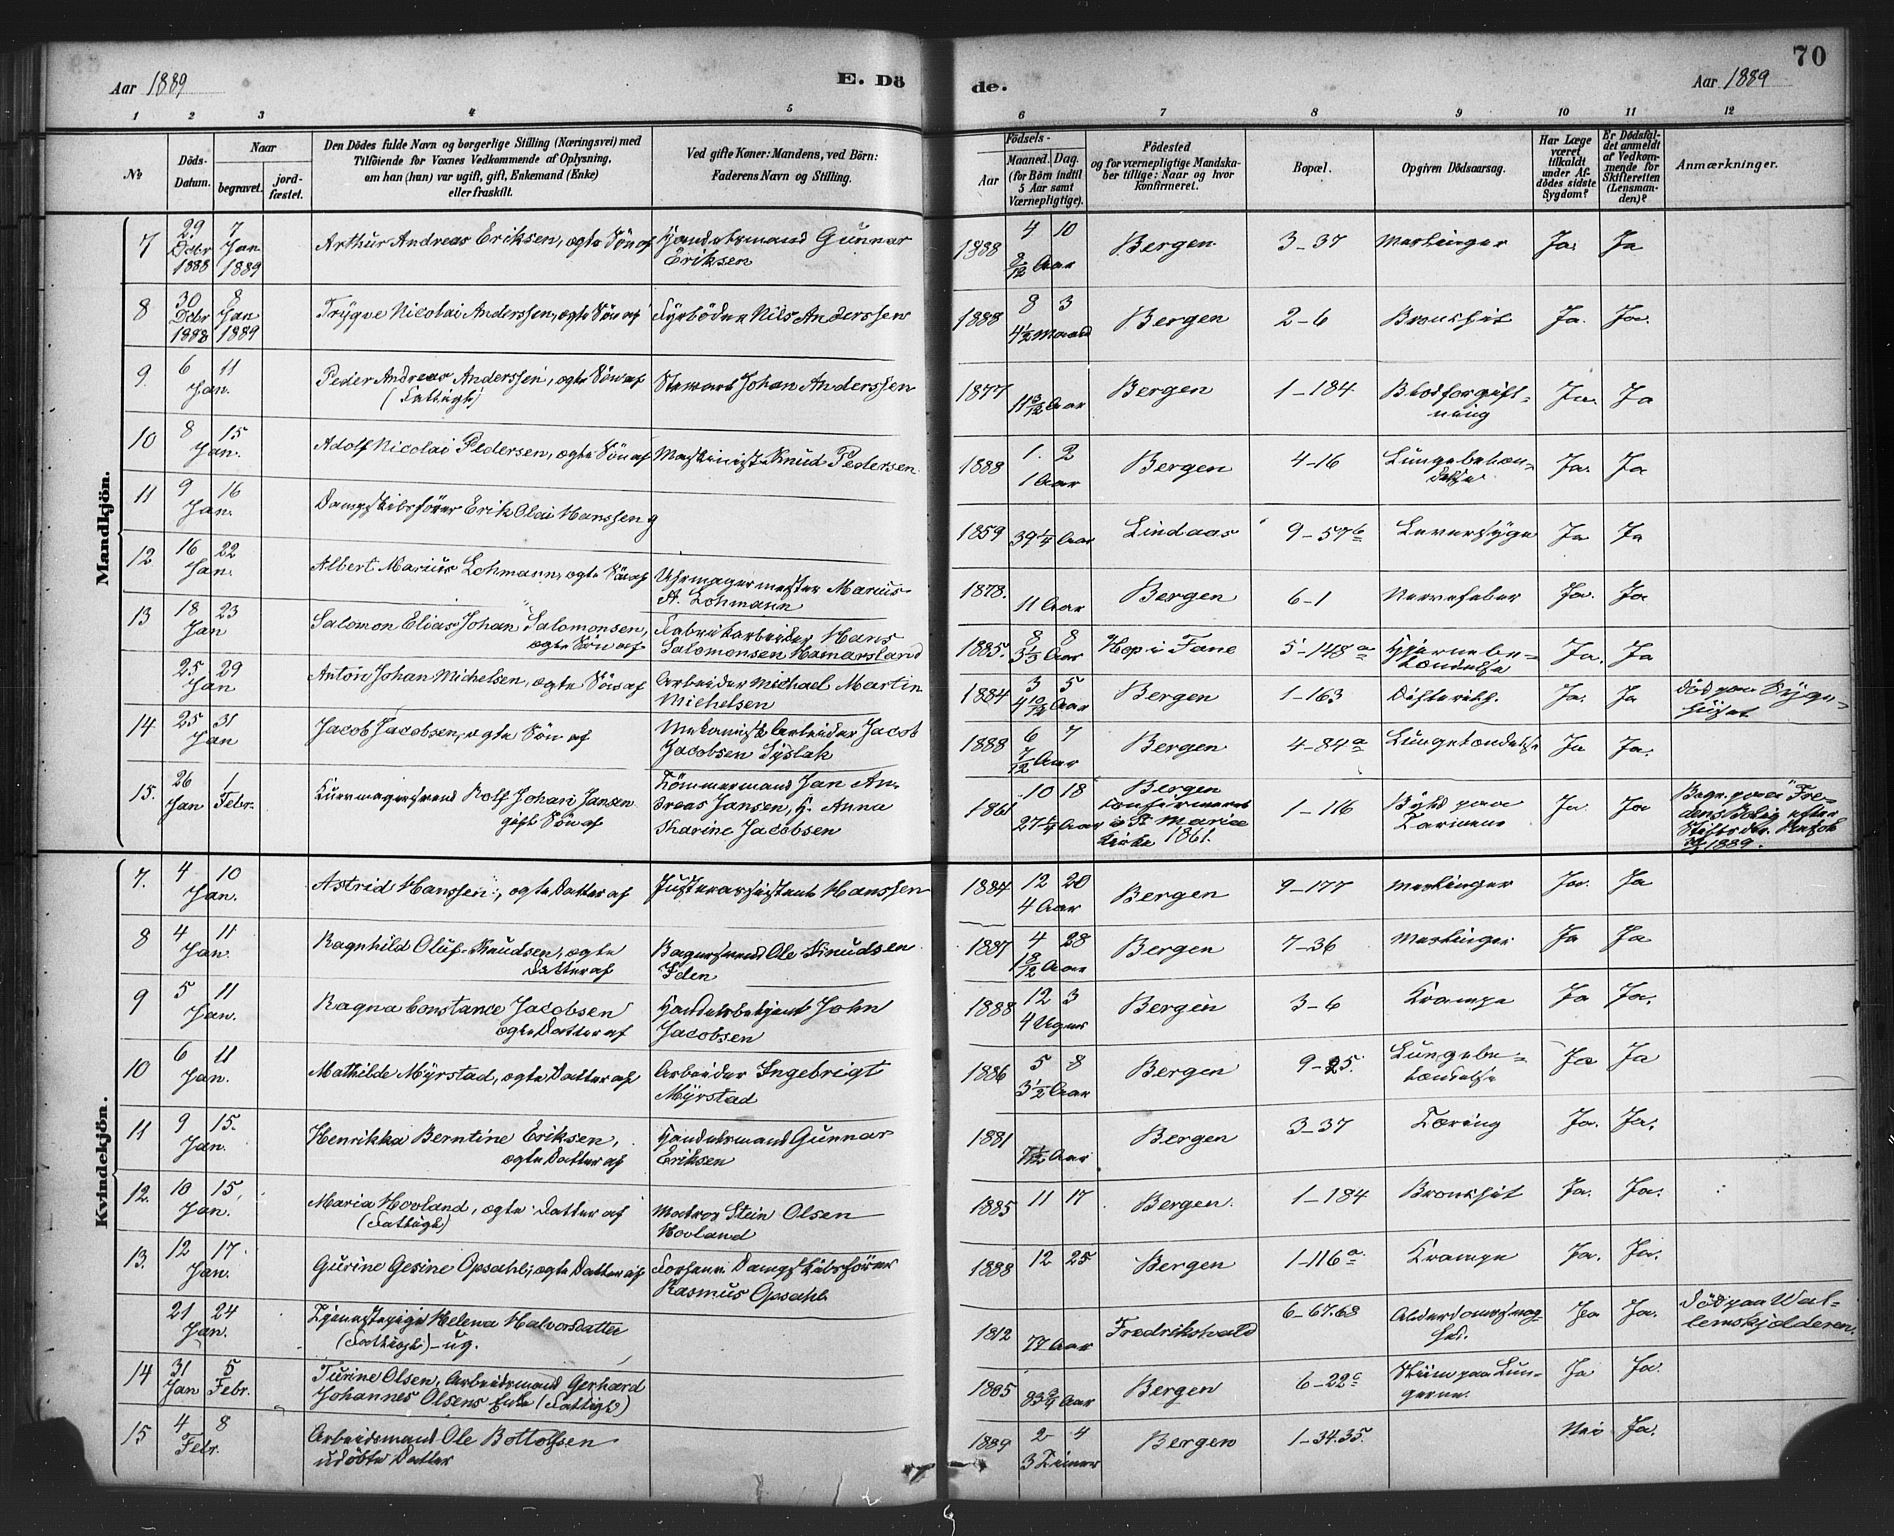 Aar 1889 E. Dö de. Aar 1889 70
1 2 3 4 5 6 7 8 9 10 11 12
No
Döds-Datum.
Naar
begravet. jordfæstet.
Den Dödes fulde Navn og borgerlige Stilling (Næringsvei) med
Tilföiende for Voxnes Vedkommende af Oplysning,
om han (hun) var ugift, gift, Enkemand (Enke)
eller fraskilt.
Ved gifte Koner: Mandens, ved Börn:
Faderens Navn og Stilling.
Födsels-
Aar
Maaned. Dag.
(for Börn indtil
5 Aar samt
Værnepligtige).
Födested
og for værnepligtige Mandskaber tillige: Naar og hvor
konfirmeret.
Bopæl.
Opgiven Dödsaarsag.
Har Læge
været
tilkaldt
under Afdödes sidste
Sygdom?
Er Dödsfaldet anmeldt
af Vedkommende for
Skifteretten
(Lensmanden)?
Anmærkninger.
Mandkjön.
7 29 Decbr 1888 7 Jan 1889 Arthur Andreas Eriksen, ægte Sön af Handelsmand Gunnar Eriksen 1888 4 10 8/12 Aar Bergen 3-37 Meslinger Ja. Ja
8 30 Decbr 1888 8 Jan 1889 Trygve Nicolai Anderssen, ægte Sön af Fyrböder Nils Anderssen 1888 8 3 4½ Maaned Bergen 2-6 Bronkhit Ja. Ja.
9. 6 11 Jan. Peder Andreas Anderssen, ægte Sön af (Fattigk) Steward Johan Anderssen 1877 11 3/12 Aar Bergen 1-184 Blodforgiftning Ja. Ja
10 8 15 Jan. Adolf Nicolai Pedersen, ægte Sön af Maskinist Knud Pedersen 1888 1. 2 1 Aar Bergen 4-16 Lungebetændelse Ja. Ja
11 9 16 Jan. Dampskibsförer Erik Olai Hanssen g 1859 39¼ Aar Lindaas 9-57b Leversyge Ja Ja
12. 16 22 Jan. Albert Marius Lohmann, ægte Sön af Uhrmagermester Marius A. Lohmann 1878. 11 Aar Bergen 6-1 Nervefeber Ja. Ja
13 18 23 Jan Salomon Elias Johan Salomonsen, ægte Sön af Fabrikarbeider Hans Salomonsen Hamarsland 1885. 8 8 3⅓ Aar Hop i Fane 5-148a Hjernebetændelse Ja. Ja
25 29 Jan Anton Johan Michelsen, ægte Sön af Arbeider Michael Martin Michelsen 1884 3 5 4 10/12 Aar Bergen 1-163 Difterith. Ja. Ja Död paa Sygehuset
14. 25 31 Jan Jacob Jacobsen, ægte Sön af Mekanisk Arbeider Jacob Jacobsen Syslak 1888 6 7 7/12 Aar Bergen 4-84a Lungebetændelse Ja Ja.
15. 26 Jan 1 Febr. Rolf Johan Jansen gift Sön af Tömmermand Jan Andreas Jansen, H. Anna Karine Jacobsen 1861 10 18 27¼ Aar Bergen konfirmeret i St Mariæ Kirke 1861. 1-116 Byld paa Tarmene Ja Ja
1889.
Kvindekjön.
7. 4 10 Jan. Astrid Hanssen, ægte Datter af Justerassistent Hanssen 1884 12 20 4 Aar Bergen 9-177 Meslinger Ja. Ja
8 4 11 Jan. Ragnhild Oluf. Knudsen, ægte Datter af Bagersvend Ole Knudsen Iden 1887 4 28 1 8/12 Aar Bergen 7-36 Meslinger Ja Ja
9 5 11 Jan. Ragna Constance Jacobsen ægte Datter af Handelsbetjent John Jacobsen 1888 12 3 4 Uger Bergen 3-6 Krampe Ja Ja.
10 6 11 Jan. Mathilde Myrstad, ægte Datter af Arbeider Ingebrigt Myrstad 1886 5 8 3½ Aar Bergen 9-25. Lungebetændelse Ja Ja
11 9 15. Jan. Henrikka Berntine Eriksen, ægte Datter af Handelsmand Gunnar Eriksen 1881 7½ Aar Bergen 3-37 Tæring Ja. Ja.
12. 10 15, Jan. Maria Hovland, ægte Datter af (Fattigk) Matros Stein Olsen Hovland 1885 11 17 Bergen. 1-184 Bronkhit Ja. Ja.
13. 12 17. Jan. Gurine Gesine Opsahl, ægte Datter af Forhenv. Dampskibsförer Rasmus Opsahl 1888 12 25 Bergen 1-116a. Krampe Ja. Ja.
21 24 Jan. Tjenestepige Helena Halvorsdatter (Fattigk) - ug. 1812 77 Aar Fredrikshald 6-67.68 Alderdomssvaghed. Ja Ja. Död paa
14 31 Jan 5 Febr. Turine Olsen, Arbeidsmand Gerhard Johannes Olsens Enke (Fattigk) 1805 83¾ Aar Bergen 6-22c Sliim paa Lungerne. Ja Ja.
15 4 8 Febr. Arbeidsmand Ole Bottolfsen udöbte Datter 1889 2 4 3 Timer Bergen 1-34.35. Nei Ja.